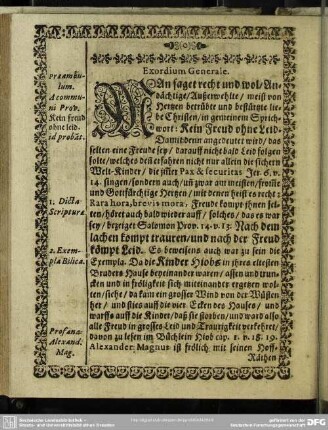 Exordium Generale.
MAn saget recht und wol/ An-
dächtige/ Außerwehlte/ meist von
Hertzen betrübte und bestürtzte lie-
be Christen/ in gemeinem Sprich-
wort: Kein Freud ohne Leid.
Damit denn angedeutet wird/ das
selten eine Freude sey/ darauff nicht bald Leid folgen
solte/ welches denn erfahren nicht nur allein die sichern
Welt-Kinder/ die jtzter Pax & securitas Jer. 6. v.
14. singen/ sondern auch/ und zwar am meisten/ fromme
und Gottfürchtige Hertzen/ mit denen heist es recht:
Rara hora, brevis mora. Freude kompt ihnen sel-
ten/ höret auch bald wieder auff/ solches/ das es war
sey/ bezeiget Salomon Prov. 14. v. 13. Nach dem
lachen kompt trauren/ und nach der Freud
kömpt Leid. Es beweisens auch war zu sein die
Exempla. Da die Kinder Hiobs in ihres eltesten
Bruders Hause beyeinander waren/ assen und trun-
cken und in fröligkeit sich miteinander ergetzen wol-
ten/ siehe/ da kam ein grosser Wind von der Wüsten
her/ und sties auff die vier Ecken des Hauses/ und
warffs auff die Kinder/ daß sie storben/ und ward also
alle Freud in grosses Leid und Traurigkeit verkehret/
davon zu lesen im Büchlein Hiob cap. 1. v. 18. 19.
Alexander Magnus ist frölich mit seinen Hoff-
Räthen
Præambu-
lum.
A commu-
ni Prov.
Kein freud
ohnt leid.
id probat.
1. Dicta
Scripturæ.
2. Exem-
pla Bilica.
Profana:
Alexand.
Mag.